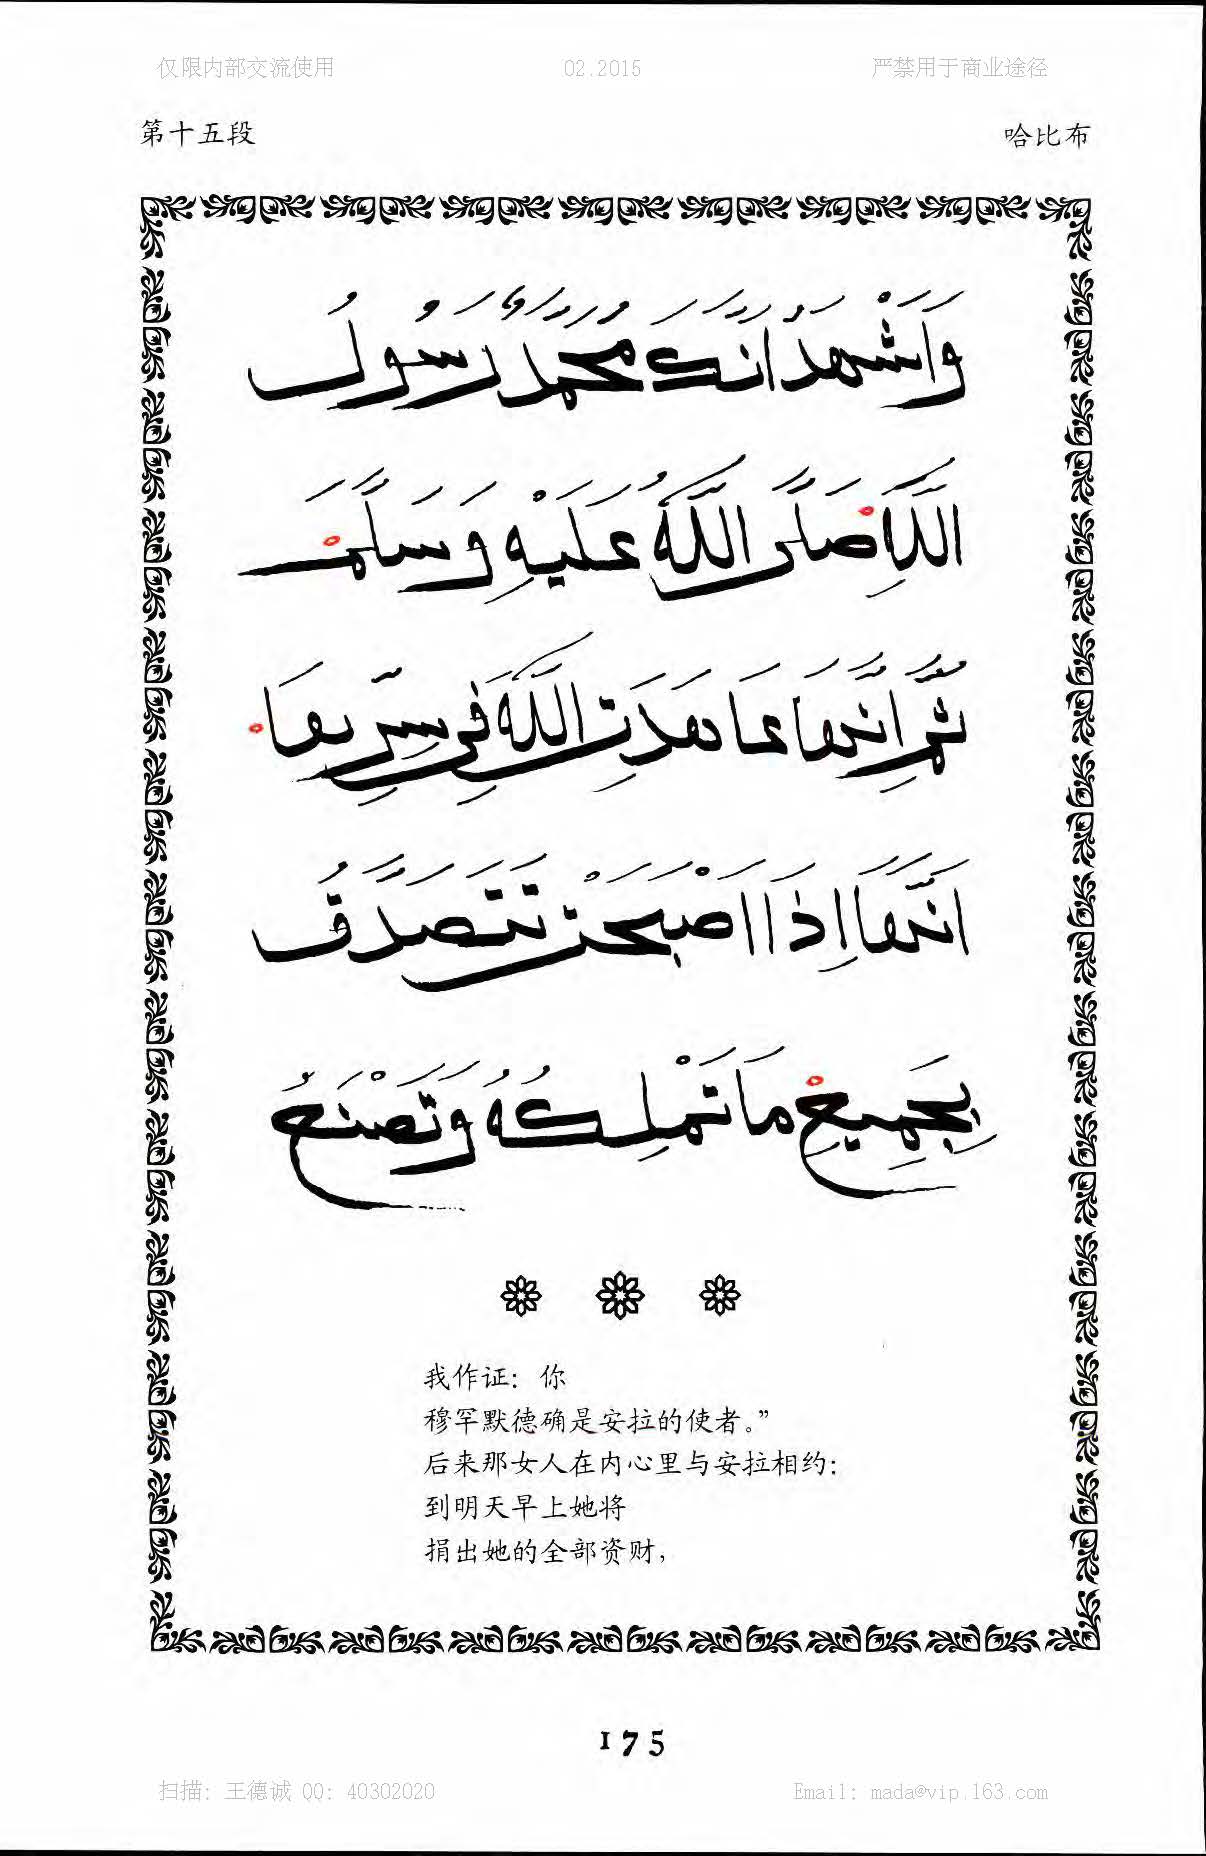 仅限内部交流使用 02.2015 严禁用于商业途径
第十五段 哈比布
وَاَشْهَدُ اَنَّكَ مُحَمَّدٌ رَسُولُ
اللَّهِ صَلَّى اللَّهُ عَلَيْهِ وَسَلَّمَ
ثُمَّ اِنَّهَا عَاهَدَتِ اللَّهَ فِي سِرِّهَا
اَنَّهَا اِذَا اَصْبَحَتْ تَتَصَدَّقُ
بِجَمِيعِ مَا تَمْلِكُهُ وَتَصْنَعُ
我作证：你
穆罕默德确是安拉的使者。”
后来那女人在内心里与安拉相约：
到明天早上她将
捐出她的全部资财，
175
扫描：王德诚 QQ：40302020 Email：mada@vip.163.com